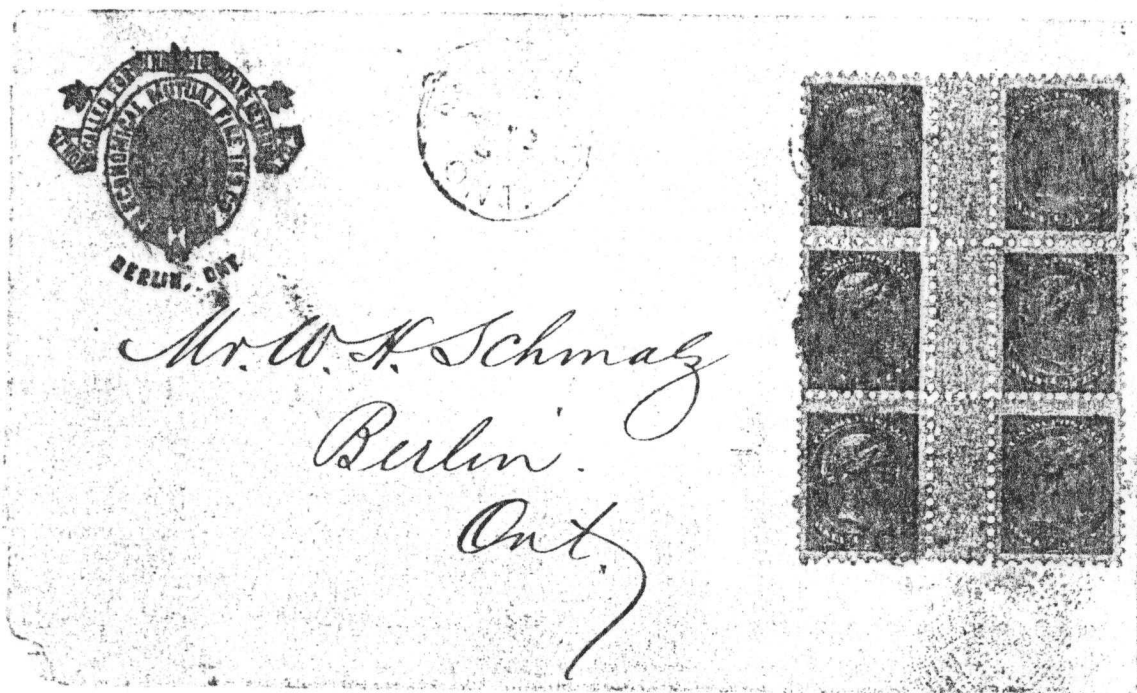 IF NOT CALLED FOR IN 10 DAYS RETURN TO
ECONOMICAL MUTUAL FIRE INS. CO.
BERLIN, ONT.
ONT.
Mr. W. H. Schmalz
Berlin.
Ont.